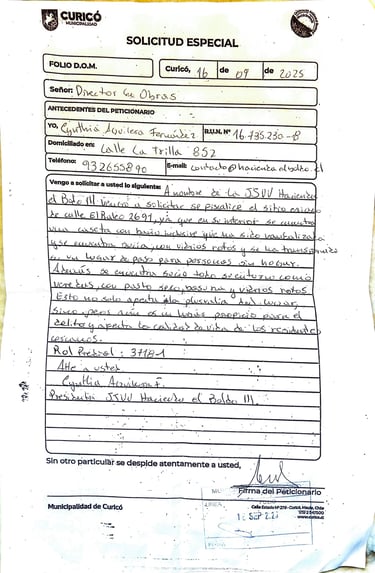 CURICÓ
MUNICIPALIDAD
SOLICITUD ESPECIAL
FOLIO D.O.M.
Curicó, 16 de 09 de 2025
Señor: Director de Obras
ANTECEDENTES DEL PETICIONARIO
Yo, Cynthia Aguilera Fernández R.U.N. Nº 16.735.230-8
Domiciliado en: Calle La Trilla 852
Teléfono: 932655890 E-mail: contacto@haciendaelboldo.cl
Vengo a solicitar a usted lo siguiente: A nombre de la JJVV Hacienda
el Boldo III vengo a solicitar se fiscalice el sitio eriazo
de calle El Boldo 2691, ya que en su interior se encuentra
una caseta con baño inclusive que ha sido vandalizada
y se encuentra sucia, con vidrios rotos y se ha transformado
en un lugar de paso para personas sin hogar.
Además se encuentra sucio todo su entorno como
veredas, con pasto seco, basura y vidrios rotos.
Esto no solo afecta la plusvalía del lugar,
sino, pues aún es un lugar propicio para el
delito y afecta la calidad de vida de los residentes
cercanos.
Rol Predial: 3718-1
Atte a usted
Cynthia Aguilera F.
Presidenta JJVV Hacienda el Boldo III.
Sin otro particular se despide atentamente a usted,
Firma del Peticionario
Municipalidad de Curicó
www.curico.cl
SEP